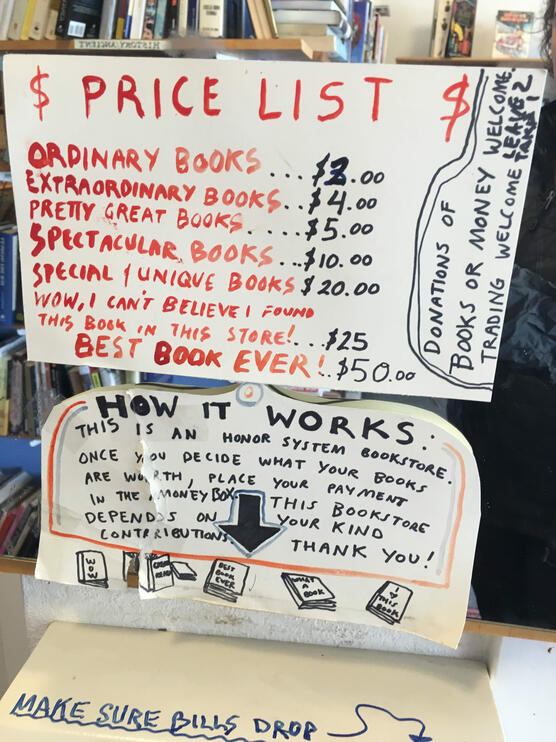 HISTORY: ANCIENT
$ PRICE LIST $
ORDINARY BOOKS ... $2.00
EXTRAORDINARY BOOKS.. $4.00
PRETTY GREAT BOOKS ..... $5.00
SPECTACULAR BOOKS... $10.00
SPECIAL & UNIQUE BOOKS $20.00
WOW, I CAN'T BELIEVE I FOUND
THIS BOOK IN THIS STORE!... $25
BEST BOOK EVER!.. $50.00
DONATIONS OF
BOOKS OR MONEY WELCOME
TRADING WELCOME LEAVE 2
TAKE 1
HOW IT WORKS:
THIS IS AN HONOR SYSTEM BOOKSTORE.
ONCE YOU DECIDE WHAT YOUR BOOKS
ARE WORTH, PLACE YOUR PAYMENT
IN THE MONEY BOX. THIS BOOKSTORE
DEPENDS ON YOUR KIND
CONTRIBUTIONS THANK YOU!
WOW
GREAT
READ
BEST
BOOK
EVER
WHAT
A
BOOK
I ♥
THIS
BOOK
MAKE SURE BILLS DROP